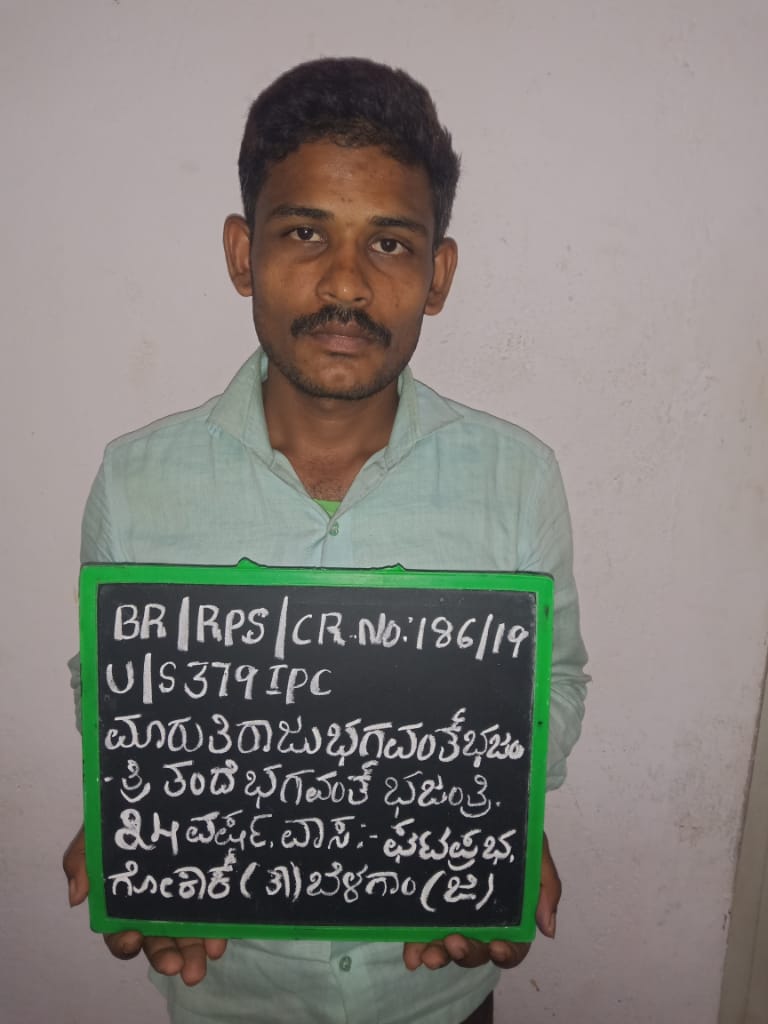 BR/RPS/CR.NO:186/19
U/S 379 IPC
ಮಾರುತಿರಾಜು ಭಗವಂತ್ ಭಜಂ
-ತ್ರಿ ತಂದೆ ಭಗವಂತ್ ಭಜಂತ್ರಿ.
24 ವರ್ಷ, ವಾಸ:- ಘಟಪ್ರಭ,
ಗೋಕಾಕ್ (ತಾ) ಬೆಳಗಾಂ (ಜಿ)